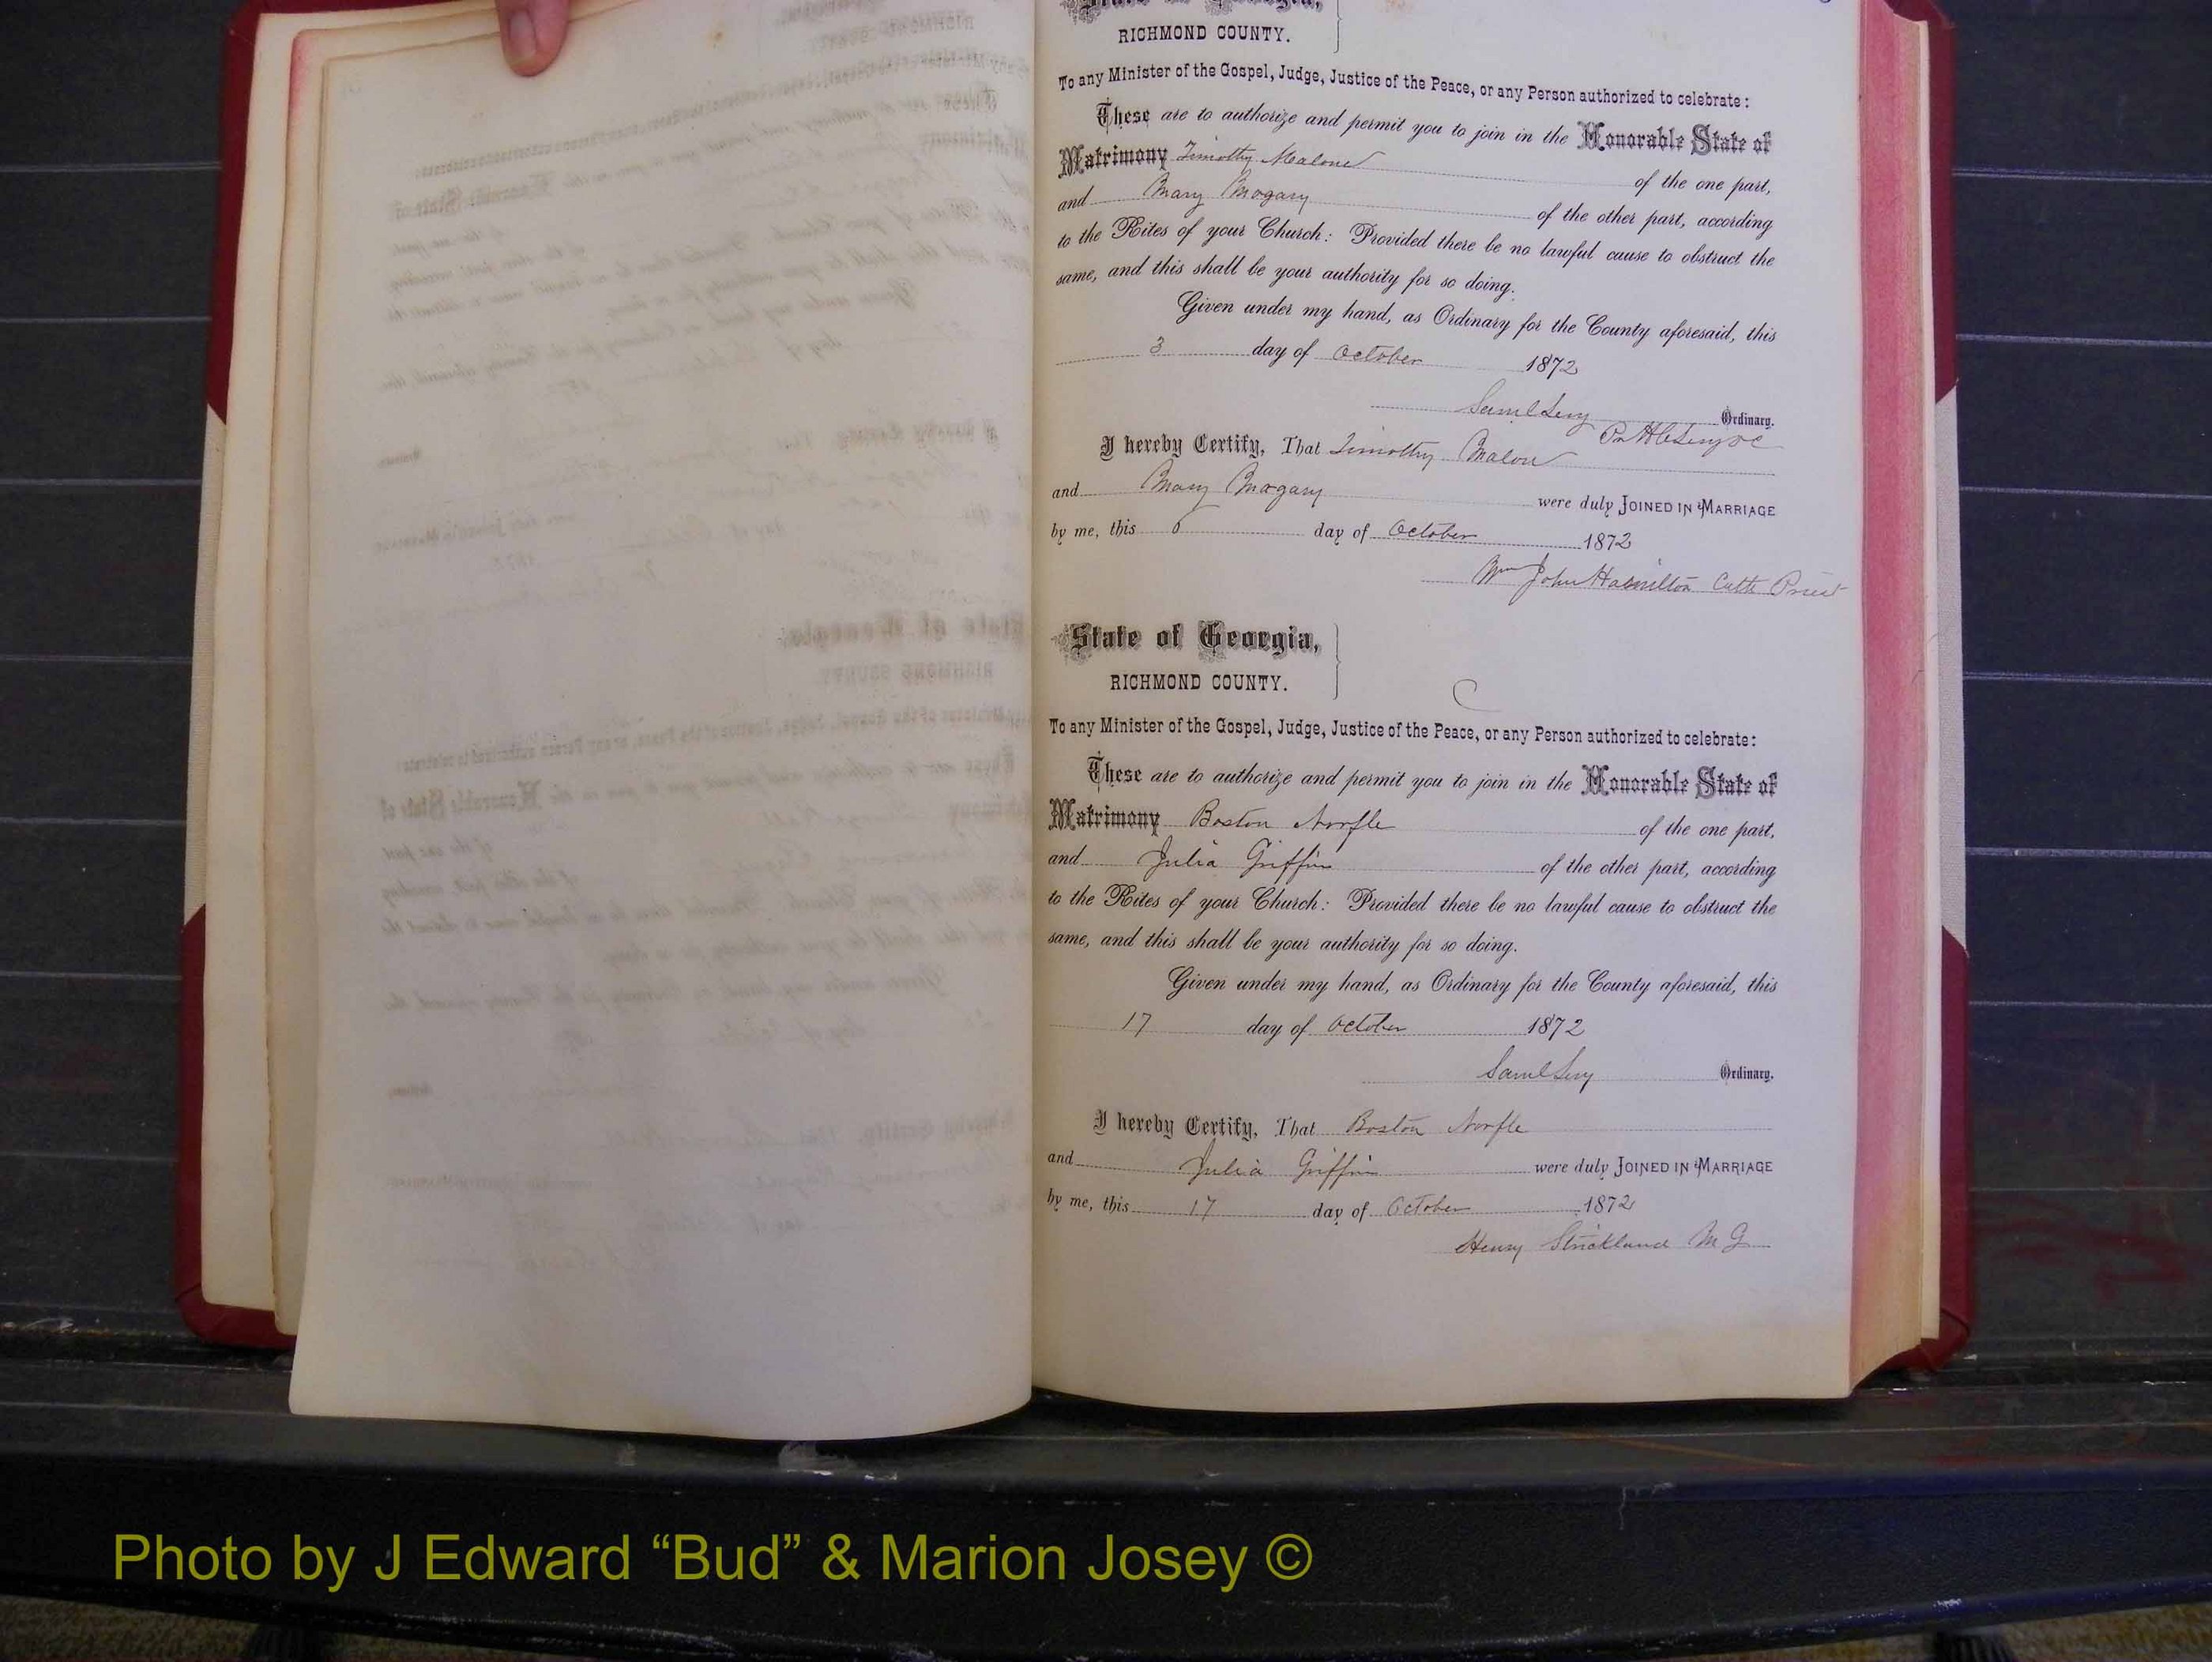 State of Georgia,
RICHMOND COUNTY.
To any Minister of the Gospel, Judge, Justice of the Peace, or any Person authorized to celebrate:
These are to authorize and permit you to join in the Honorable State of
Matrimony Timothy Malone of the one part,
and Mary Mogary of the other part, according
to the Rites of your Church: Provided there be no lawful cause to obstruct the
same, and this shall be your authority for so doing.
Given under my hand, as Ordinary for the County aforesaid, this
3 day of October 1872
Saml Levy Ordinary.
I hereby Certify, That Timothy Malone
and Mary Mogary were duly JOINED IN MARRIAGE
by me, this 6 day of October 1872
Wm John Hamilton Cath Priest
State of Georgia,
RICHMOND COUNTY.
C
To any Minister of the Gospel, Judge, Justice of the Peace, or any Person authorized to celebrate:
These are to authorize and permit you to join in the Honorable State of
Matrimony Boston Norfle of the one part,
and Julia Griffin of the other part, according
to the Rites of your Church: Provided there be no lawful cause to obstruct the
same, and this shall be your authority for so doing.
Given under my hand, as Ordinary for the County aforesaid, this
17 day of October 1872
Saml Levy Ordinary.
I hereby Certify, That Boston Norfle
and Julia Griffin were duly JOINED IN MARRIAGE
by me, this 17 day of October 1872
Henry Strickland M G
Photo by J Edward “Bud” & Marion Josey ©